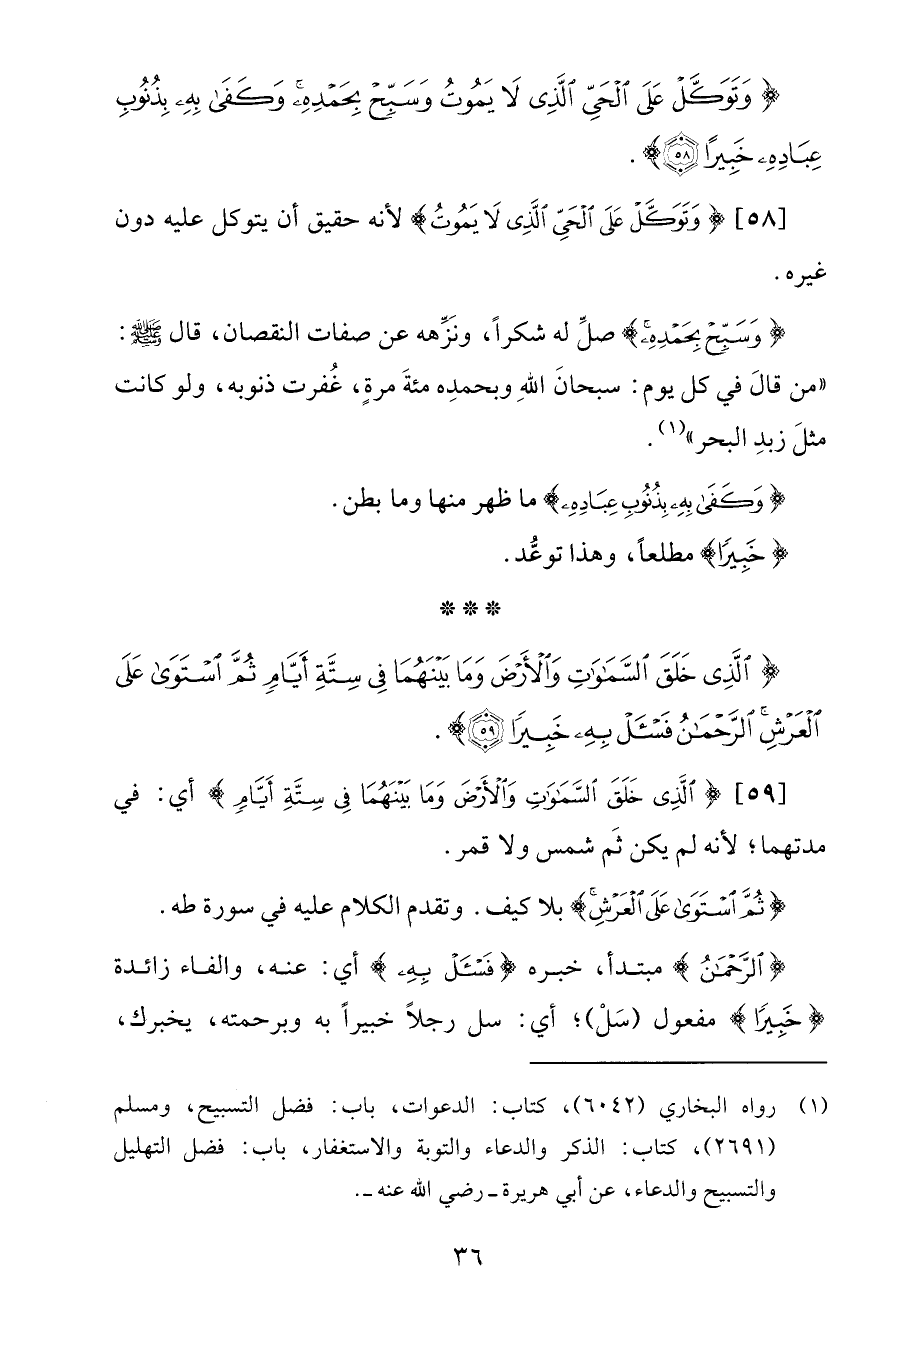 ﴿ وَتَوَكَّلْ عَلَى ٱلْحَىِّ ٱلَّذِى لَا يَمُوتُ وَسَبِّحْ بِحَمْدِهِۦۚ وَكَفَىٰ بِهِۦ بِذُنُوبِ
عِبَادِهِۦ خَبِيرًا ٥٨ ﴾ .
[٥٨] ﴿ وَتَوَكَّلْ عَلَى ٱلْحَىِّ ٱلَّذِى لَا يَمُوتُ ﴾ لأنه حقيق أن يتوكل عليه دون
غيره .
﴿ وَسَبِّحْ بِحَمْدِهِۦۚ ﴾ صلِّ له شكراً، ونزِّهه عن صفات النقصان، قال ﷺ :
«من قالَ في كل يوم: سبحانَ اللهِ وبحمدِه مئةَ مرةٍ، غُفرت ذنوبه، ولو كانت
مثلَ زبدِ البحر»(١) .
﴿ وَكَفَىٰ بِهِۦ بِذُنُوبِ عِبَادِهِۦ ﴾ ما ظهر منها وما بطن .
﴿ خَبِيرًا ﴾ مطلعاً، وهذا توعُّد .
* * *
﴿ ٱلَّذِى خَلَقَ ٱلسَّمَٰوَٰتِ وَٱلْأَرْضَ وَمَا بَيْنَهُمَا فِى سِتَّةِ أَيَّامٍ ثُمَّ ٱسْتَوَىٰ عَلَى
ٱلْعَرْشِۚ ٱلرَّحْمَٰنُ فَسْـَٔلْ بِهِۦ خَبِيرًا ٥٩ ﴾ .
[٥٩] ﴿ ٱلَّذِى خَلَقَ ٱلسَّمَٰوَٰتِ وَٱلْأَرْضَ وَمَا بَيْنَهُمَا فِى سِتَّةِ أَيَّامٍ ﴾ أي: في
مدتهما؛ لأنه لم يكن ثَم شمس ولا قمر .
﴿ ثُمَّ ٱسْتَوَىٰ عَلَى ٱلْعَرْشِۚ ﴾ بلا كيف . وتقدم الكلام عليه في سورة طه .
﴿ ٱلرَّحْمَٰنُ ﴾ مبتدأ، خبره ﴿ فَسْـَٔلْ بِهِۦ ﴾ أي: عنه، والفاء زائدة
﴿ خَبِيرًا ﴾ مفعول (سَلْ)؛ أي: سل رجلاً خبيراً به وبرحمته، يخبرك،
(١) رواه البخاري (٦٠٤٢)، كتاب: الدعوات، باب: فضل التسبيح، ومسلم
(٢٦٩١)، كتاب: الذكر والدعاء والتوبة والاستغفار، باب: فضل التهليل
والتسبيح والدعاء، عن أبي هريرة ـ رضي الله عنه ـ.
٣٦